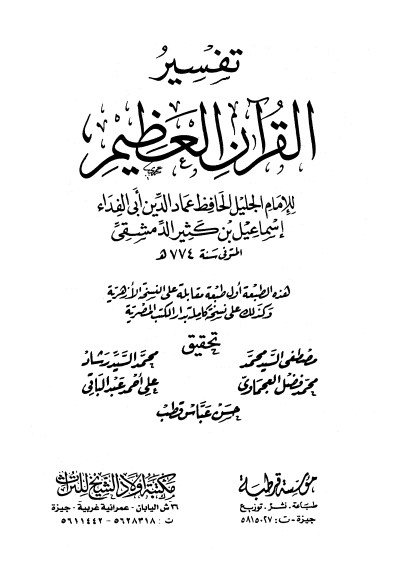 تفسير
القرآن العظيم
للإمام الجليل الحافظ عماد الدين أبي الفداء
إسماعيل بن كثير الدمشقي
المتوفى سنة ٧٧٤ هـ
هذه الطبعة أول طبعة مقابلة على النسخة الأزهرية
وكذلك على نسخة كاملة بدار الكتب المصرية
تحقيق
مصطفى السيد محمد محمد السيد رشاد
محمد فضل العجماوى على أحمد عبد الباقى
حسن عباس قطب
مؤسسة قرطبة
طباعة . نشر . توزيع
جيزة - ت : ٥٨١٥٠٢٧
مكتبة أولاد الشيخ للتراث
٣٦ ش اليابان - عمرانية غربية - جيزة
ت : ٥٦٢٨٣١٨ - ٥٦١١٤٤٢